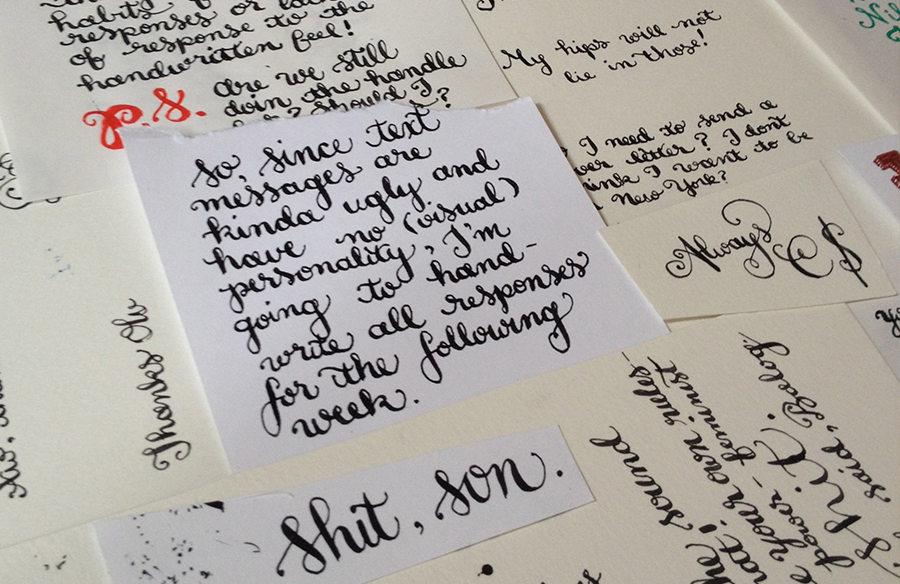 habits
responses or
of response to the
handwritten feel!
P.S. are we still
doin the handle
? Should I
?
My hips will not
lie in those!
I need to send a
letter? I don't
I want to be
New York?
Always
$
So, since text
messages are
kinda ugly and
have no (visual)
personality, I'm
going to hand-
write all responses
for the following
week.
Thanks
shit, son.
sound
your own rules
power - feminist
Shit.
said, Baby